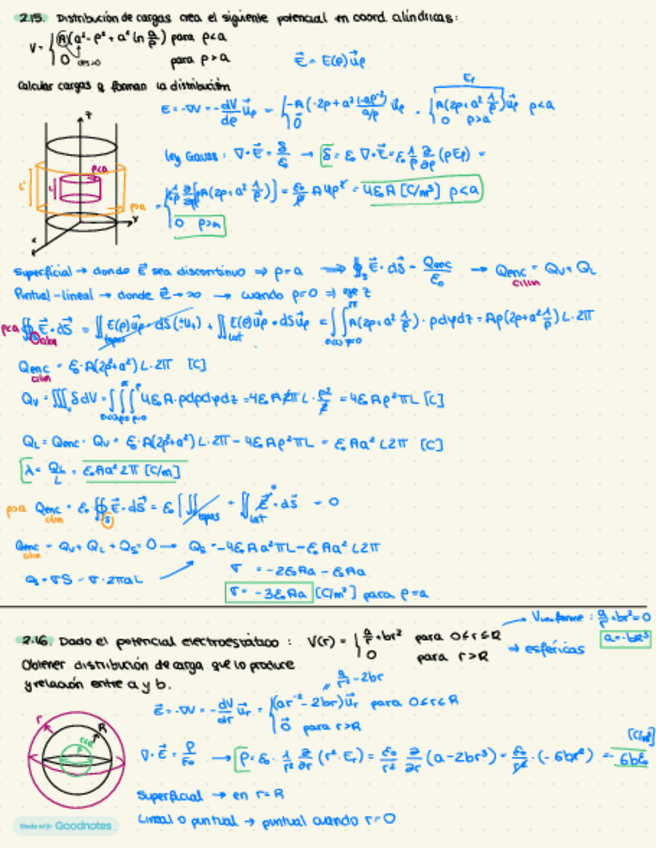 2.15. Distribución de cargas crea el siguiente potencial en coord cilíndricas:
V = { A(a² - ρ² + a² ln a/ρ) para ρ<a
0 para ρ>a
cte>0
E⃗ = E(ρ)u⃗ρ
Calcular cargas q forman la distribución
E = -∇V = -dV/dρ u⃗ρ = { -A(-2ρ + a² (-aρ⁻²)/(a/ρ)) u⃗ρ = { A(2ρ + a² 1/ρ) u⃗ρ ρ<a
0⃗ 0 ρ>a
Eρ
ley Gauss: ∇·E⃗ = δ/ε₀ → δ = ε₀ ∇·E⃗ = ε₀ 1/ρ ∂/∂ρ (ρEρ) =
A(2ρ + a² 1/ρ)] = ε₀/ρ A4ρ = 4ε₀A [C/m³] ρ<a
0 ρ>a
z
L'
L
ρ<a
ρ>a
y
x
Superficial → donde E⃗ sea discontinuo ⇒ ρ=a ⇒ ∮s E⃗·dS⃗ = Qenc/ε₀ → Qenc = Qv + QL
cilin
Puntual-lineal → donde E⃗→∞ → cuando ρ=0 ⇒ eje z
ρ<a ∮ E⃗·dS⃗ = ∬ E(ρ)u⃗ρ · dS(±uz) + ∬ E(ρ)u⃗ρ · dS u⃗ρ = ∫∫ A(2ρ + a² 1/ρ) · ρdφdz = Aρ(2ρ + a² 1/ρ) L·2π
tapas lat
Qenc = ε₀·A(2ρ²+a²) L·2π [C]
cilin
Qv = ∭ δdV = ∫∫∫ 4ε₀A·ρdρdφdz = 4ε₀A2πL·ρ²/2 = 4ε₀Aρ²πL [C]
QL = Qenc - Qv = ε₀·A(2ρ²+a²) L·2π - 4ε₀Aρ²πL = ε₀Aa²L2π [C]
λ = QL/L = ε₀Aa²2π [C/m]
ρ>a Qenc = ε₀ ∮s E⃗·dS⃗ = ε₀ [∬ tapas + ∬ lat E⃗·dS⃗ = 0
cilin
Qenc = Qv + QL + Qs = 0 → Qs = -4ε₀Aa²πL - ε₀Aa²L2π
cilin
Qs = σS = σ·2πaL
σ = -2ε₀Aa - ε₀Aa
σ = -3ε₀Aa [C/m²] para ρ=a
2.16. Dado el potencial electroestático: V(r) = { a/r + br² para 0≤r≤R
0 para r>R
→ V uniforme: a/r + br² = 0
a = -bR³
→ esféricas
Obtener distribución de carga que lo produce
y relación entre a y b.
a/r² - 2br
E⃗ = -∇V = -dV/dr u⃗r = { (ar⁻² - 2br)u⃗r para 0≤r≤R
0⃗ para r>R
r
R
r<R
∇·E⃗ = ρ/ε₀ → ρ = ε₀· 1/r² ∂/∂r (r²·Er) = ε₀/r² ∂/∂r (a - 2br³) = ε₀/r² ·(-6br²) = -6bε₀
[C/m³]
Superficial → en r=R
Lineal o puntual → puntual cuando r=0
Made with Goodnotes